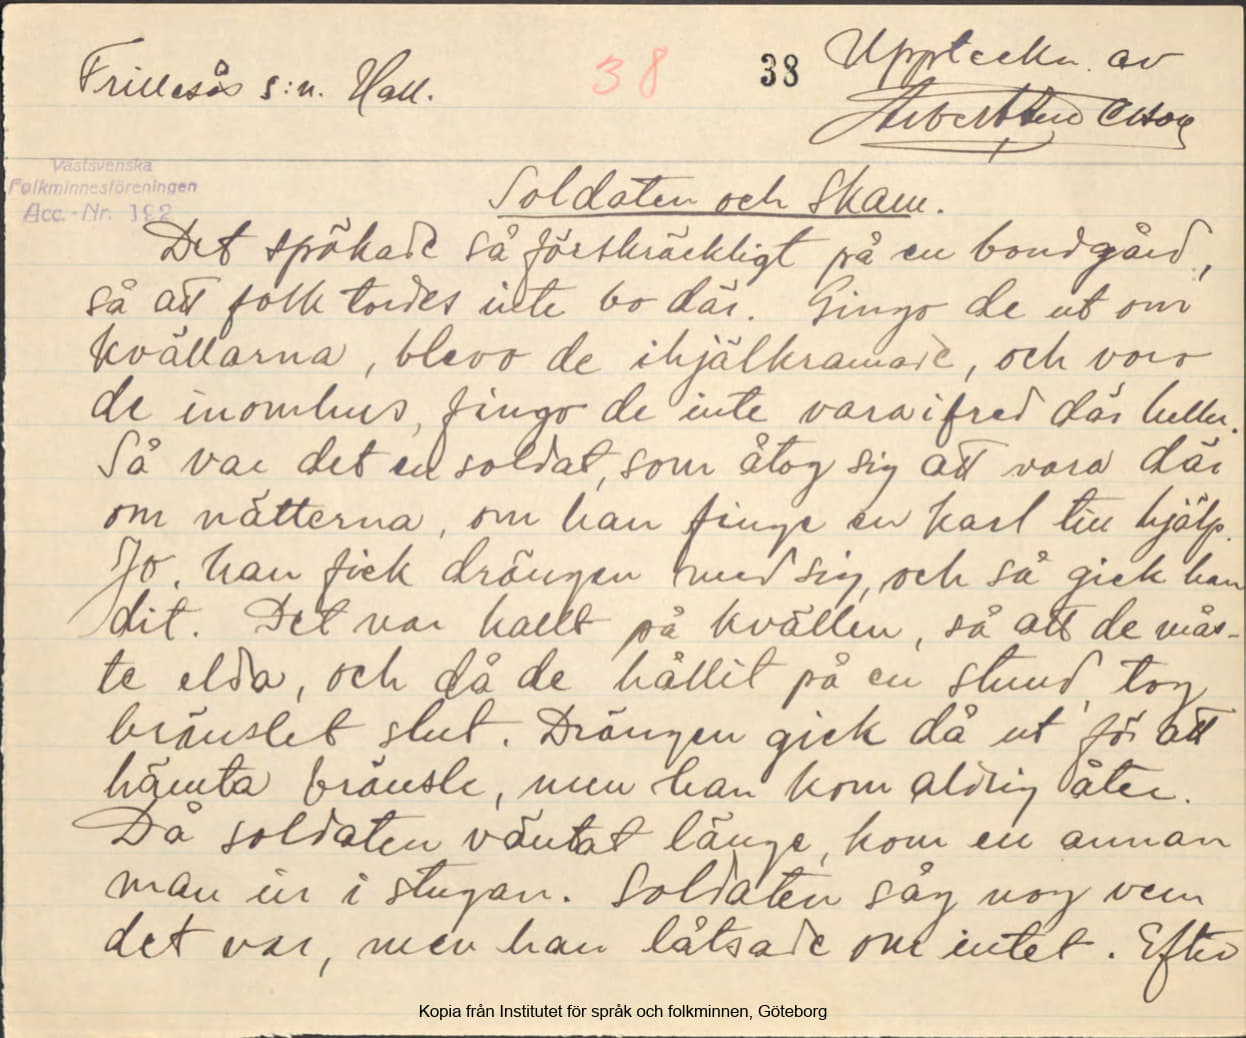 Frillesås s:n. Hall.
38
38
Uppteckn. av
Västsvenska
Folkminnesföreningen
Acc.-Nr. 192
Soldaten och Skam.
Det spökade så förskräckligt på en bondgård,
så att folk tordes inte bo där. Gingo de ut om
kvällarna, blevo de ihjälkramade, och voro
de inomhus, fingo de inte vara i fred där heller.
Så var det en soldat, som åtog sig att vara där
om nätterna, om han finge en karl till hjälp.
Jo, han fick drängen med sig, och så gick han
dit. Det var kallt på kvällen, så att de mås-
te elda, och då de hållit på en stund, tog
bränslet slut. Drängen gick då ut för att
hämta bränsle, men han kom aldrig åter.
Då soldaten väntat länge, kom en annan
man in i stugan. Soldaten såg nog vem
det var, men han låtsade om intet. Efter
Kopia från Institutet för språk och folkminnen, Göteborg